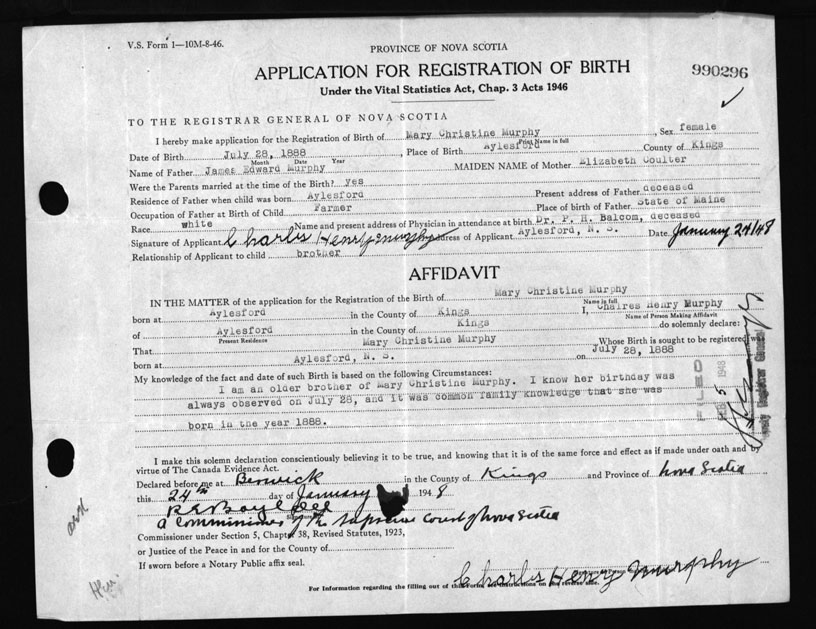 V.S. Form 1—10M-8-46.
PROVINCE OF NOVA SCOTIA
APPLICATION FOR REGISTRATION OF BIRTH
990296
Under the Vital Statistics Act, Chap. 3 Acts 1946
TO THE REGISTRAR GENERAL OF NOVA SCOTIA
I hereby make application for the Registration of Birth of Mary Christine Murphy, Sex female
Print Name in full
Date of Birth July 28, 1888, Place of Birth Aylesford County of Kings
Month Date Year
Name of Father James Edward Murphy MAIDEN NAME of Mother Elizabeth Coulter
Were the Parents married at the time of the Birth? yes
Residence of Father when child was born Aylesford Present address of Father deceased
Occupation of Father at Birth of Child Farmer Place of birth of Father State of Maine
Race white Name and present address of Physician in attendance at birth Dr. P. H. Balcom, deceased
Signature of Applicant Charles Henry Murphy Address of Applicant Aylesford, N. S. Date January 24/48
Relationship of Applicant to child brother
AFFIDAVIT
IN THE MATTER of the application for the Registration of the Birth of Mary Christine Murphy
Name in full
born at Aylesford in the County of Kings I, Chalres Henry Murphy
Name of Person Making Affidavit
of Aylesford in the County of Kings do solemnly declare:
Present Residence
That Mary Christine Murphy Whose Birth is sought to be registered was
born at Aylesford, N. S. on July 28, 1888
My knowledge of the fact and date of such Birth is based on the following Circumstances:
I am an older brother of Mary Christine Murphy. I know her birthday was
always observed on July 28, and it was common family knowledge that she was
born in the year 1888.
FILED
FEB 5 1948
Deputy Registrar General
I make this solemn declaration conscientiously believing it to be true, and knowing that it is of the same force and effect as if made under oath and by
virtue of The Canada Evidence Act.
Declared before me at Berwick in the County of Kings and Province of Nova Scotia
this 24th day of January 1948
A Commissioner of the Supreme Court of Nova Scotia
Commissioner under Section 5, Chapter 38, Revised Statutes, 1923,
or Justice of the Peace in and for the County of
If sworn before a Notary Public affix seal.
Charles Henry Murphy
For Information regarding the filling out of this Form see instructions on the reverse side.